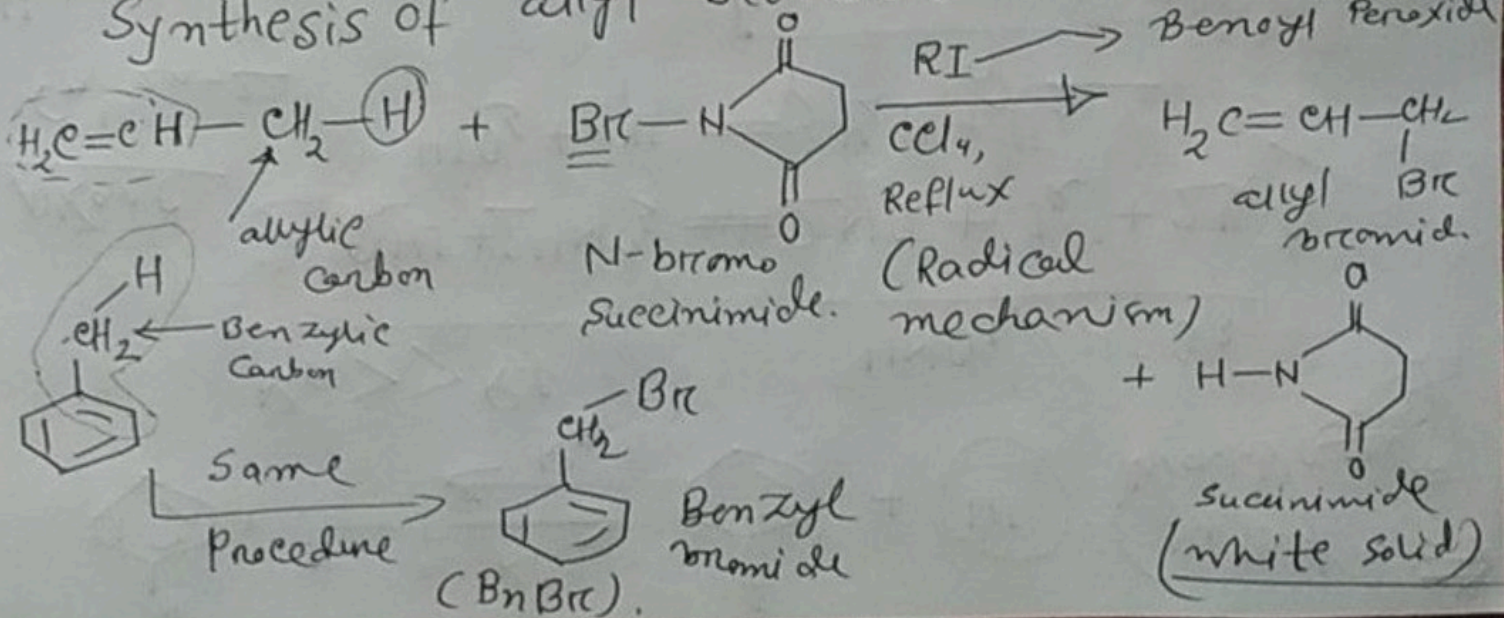 Synthesis of allyl
RI → Benoyl Peroxid
H₂C=CH—CH₂—H + Br—N
O
O
CCl₄,
Reflux
(Radical
mechanism)
H₂C=CH—CH₂
Br
allyl
bromid.
allylic
carbon
N-bromo
Succinimide.
H
CH₂ ← Benzylic
Carbon
O
+ H—N
O
Succinimide
(white solid)
Same
Procedure
Br
CH₂
Benzyl
bromide
(BnBr).